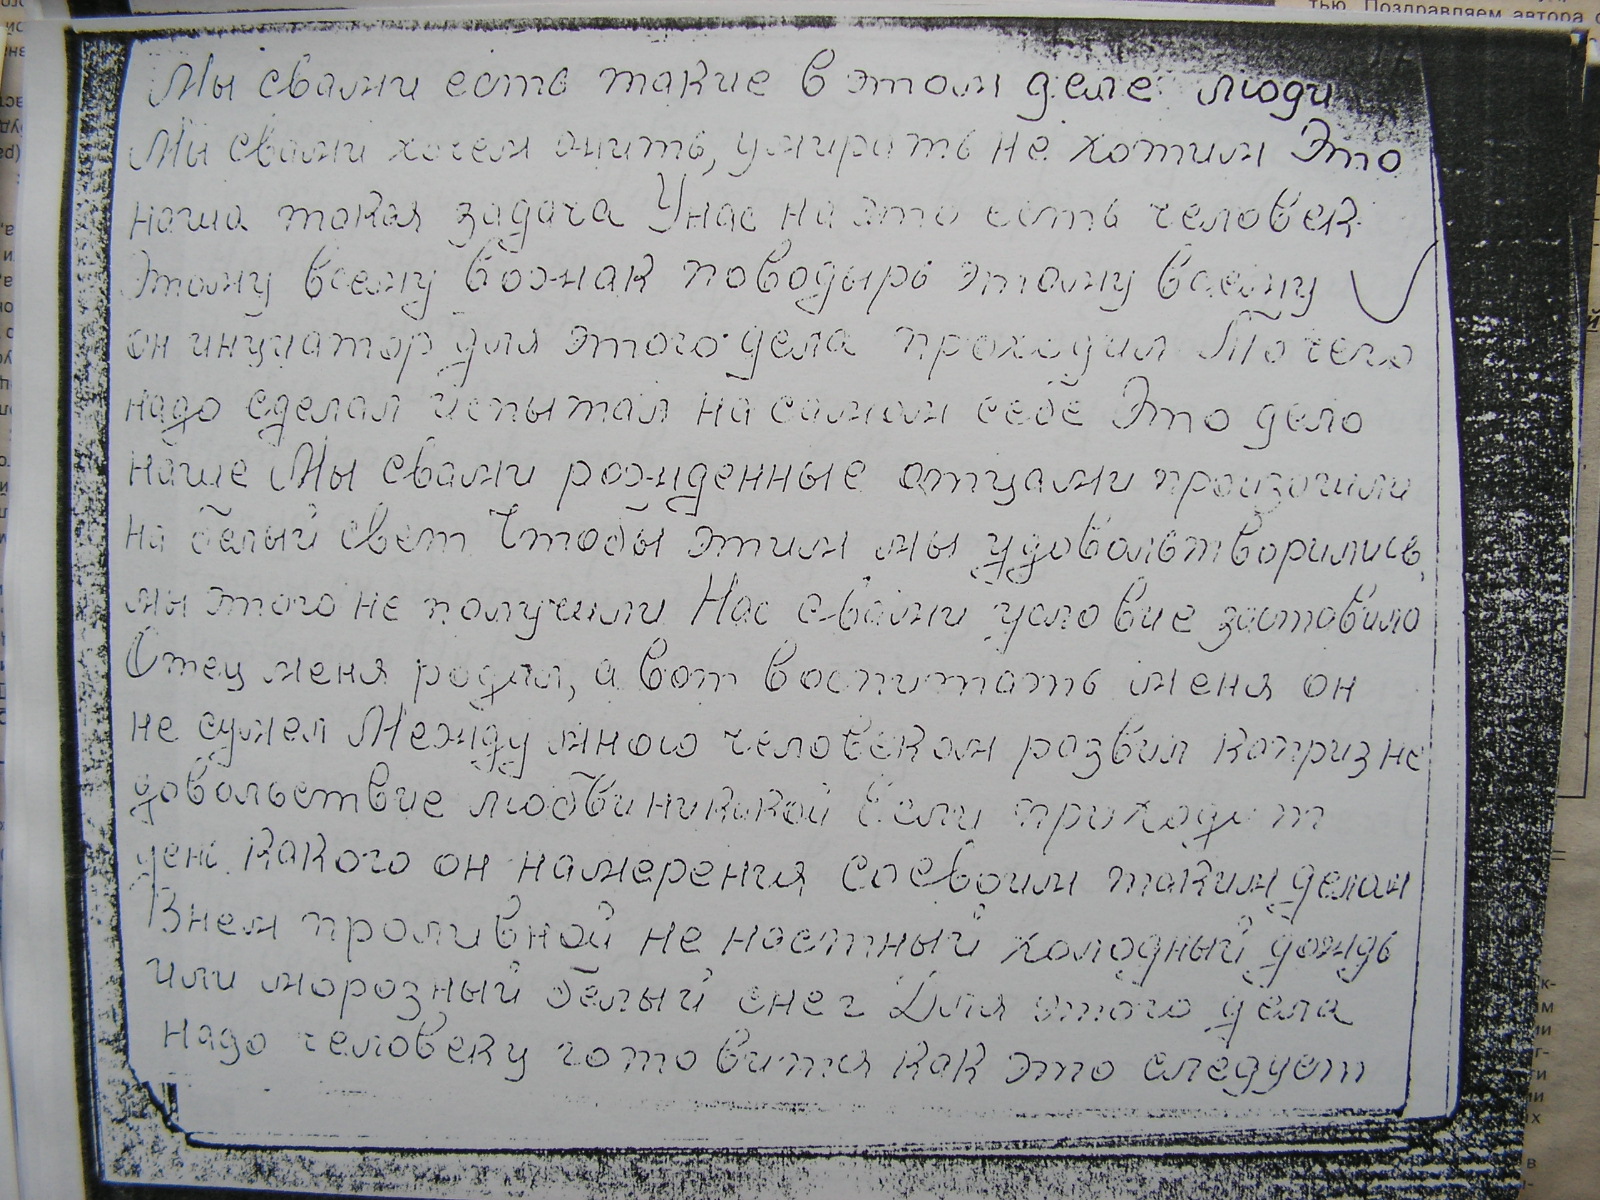 тью. Поздравляем автора с
Мы свами есть такие в этом деле люди
Мы свами хочем жить, умирать не хотим Это
наша такая задача Унас на это есть человек
Этому всему вожнак поводырь этому всему
он инициатор для этого дела проходил То чего
надо сделал испытал на самом себе Это дело
наше Мы свами рожденные отцами произошли
на белый свет Чтобы этим мы удовольтворились,
мы этого не получили Нас свами условие заставило
Отец меня родил, а вот воспитать меня он
не сумел Между мною человеком розвил каприз не
довольствие любви никикой Если приходит
ден какого он намерения своевоим таким делам
Внем проливной не настный холодный дождь
или морозный белый снег Для этого дела
надо человеку готовится как это следует